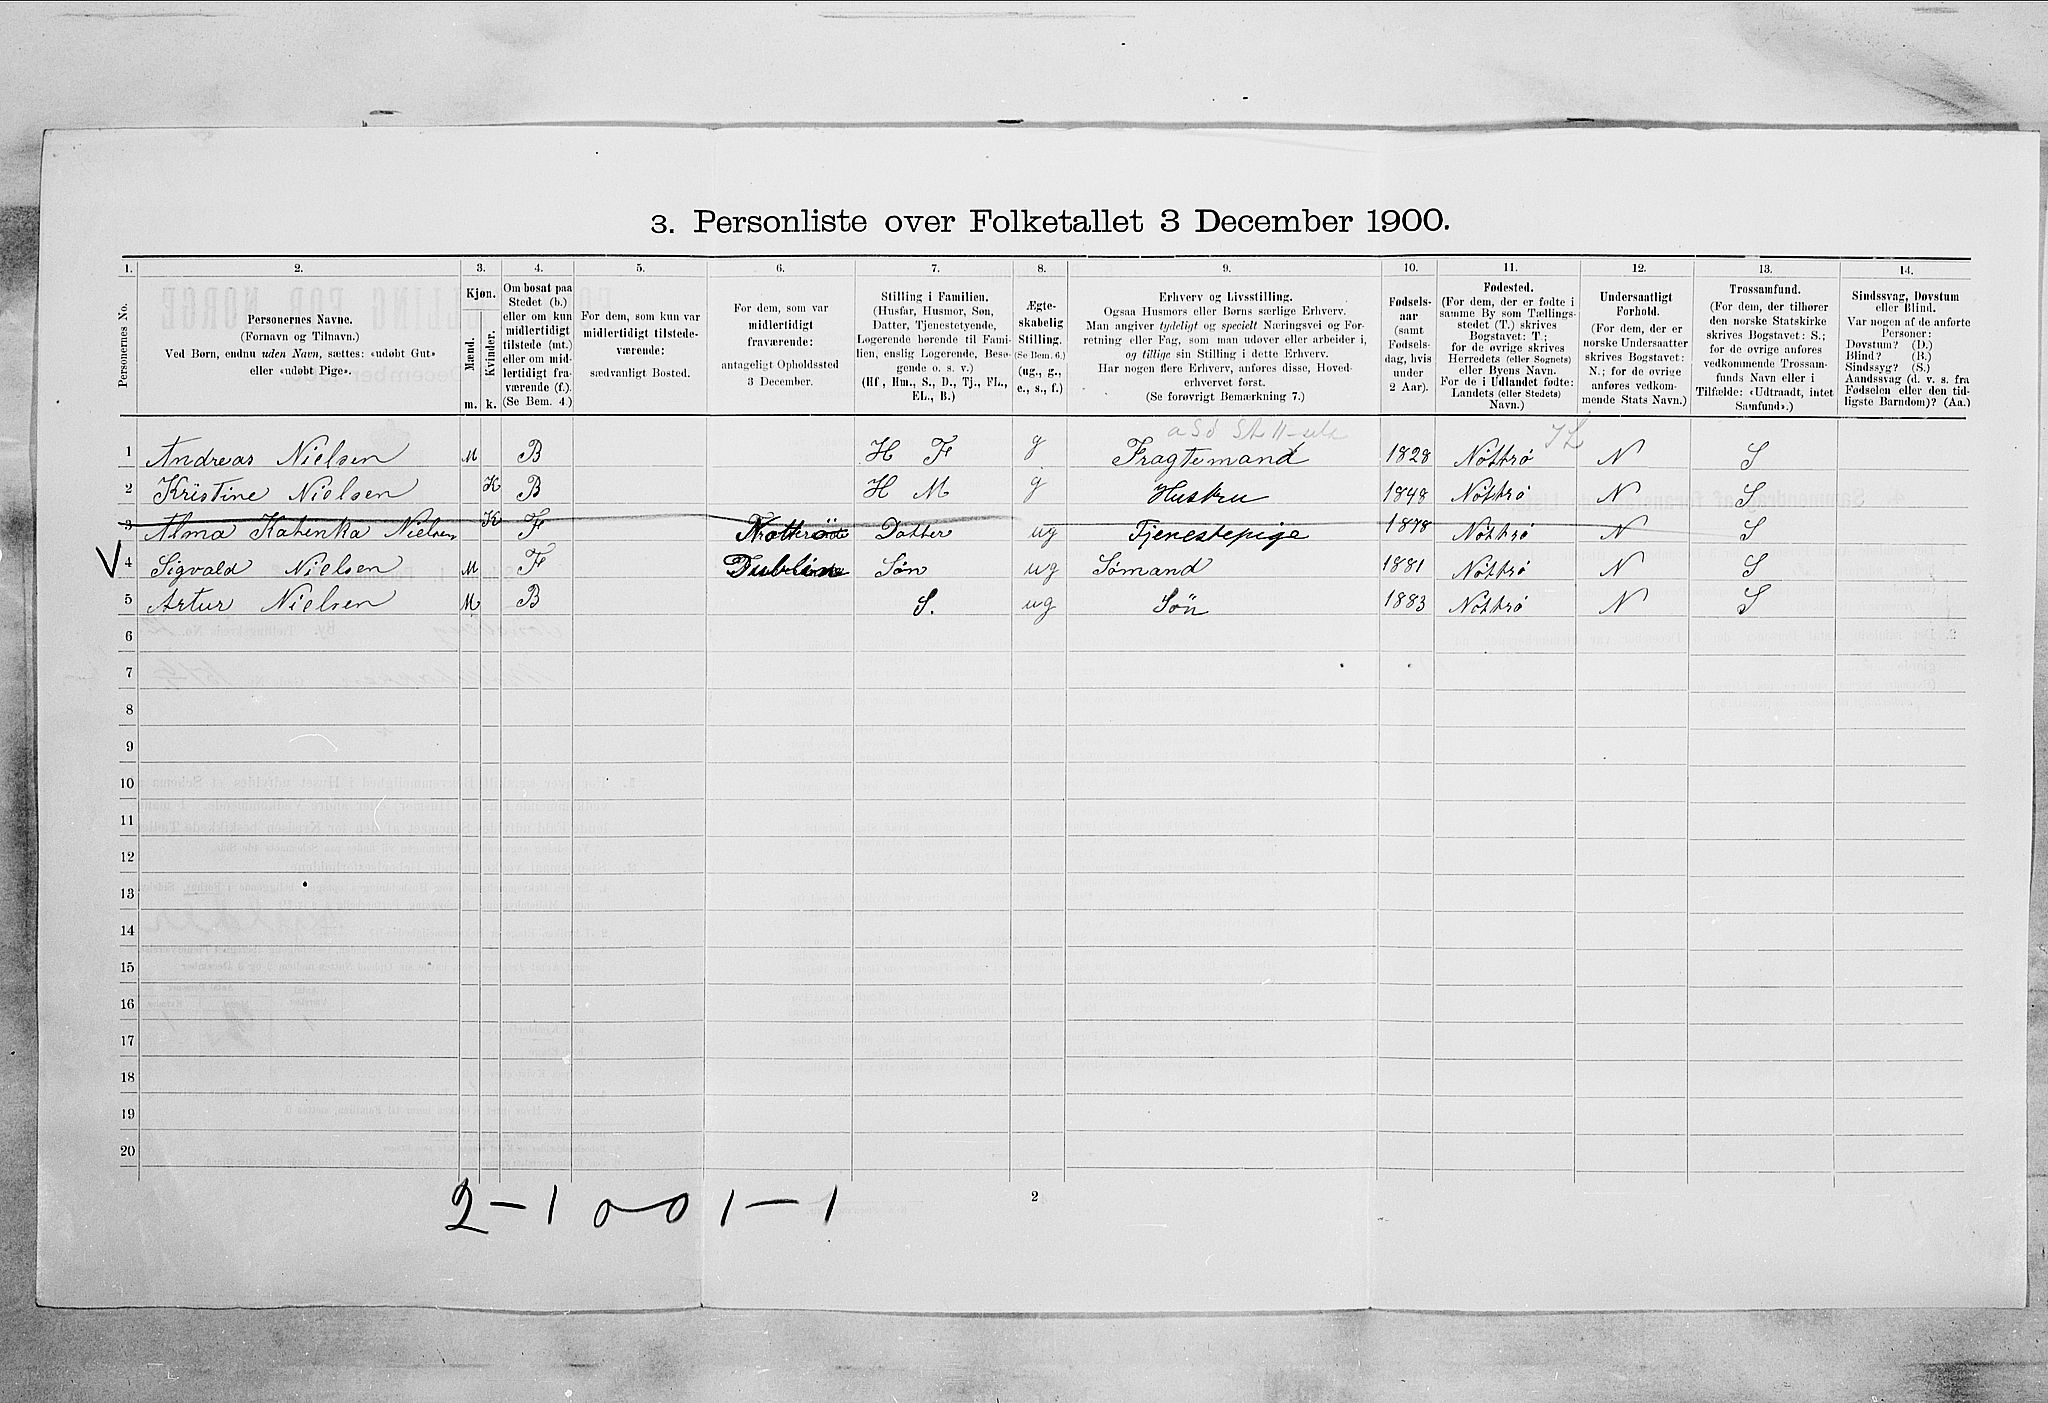 3. Personliste over Folketallet 3 December 1900.
1. 2. 3. 4. 5. 6. 7. 8. 9. 10. 11. 12. 13. 14.
Personernes No.
Personernes Navne.
(Fornavn og Tilnavn.)
Ved Børn, endnu uden Navn, sættes: «udøbt Gut»
eller «udøbt Pige».
Kjøn.
Mænd.
Kvinder.
m. k.
Om bosat paa
Stedet (b.)
eller om kun
midlertidigt
tilstede (mt.)
eller om mid-
lertidigt fra-
værende (f.).
(Se Bem. 4.)
For dem, som kun var
midlertidigt tilstede-
værende:
sædvanligt Bosted.
For dem, som var
midlertidigt
fraværende:
antageligt Opholdssted
3 December.
Stilling i Familien.
(Husfar, Husmor, Søn,
Datter, Tjenestetyende,
Logerende hørende til Fami-
lien, enslig Logerende, Besø-
gende o. s. v.)
(Hf., Hm., S., D., Tj., FL.,
EL., B.)
Ægte-
skabelig
Stilling.
(Se Bem. 6.)
(ug., g.,
e., s., f.)
Erhverv og Livsstilling.
Ogsaa Husmors eller Børns særlige Erhverv.
Man angiver tydeligt og specielt Næringsvei og For-
retning eller Fag, som man udøver eller arbeider i,
og tillige sin Stilling i dette Erhverv.
Har nogen flere Erhverv, anføres disse, Hoved-
erhvervet først.
(Se forøvrigt Bemærkning 7.)
Fødsels-
aar
(samt
Fødsels-
dag, hvis
under
2 Aar).
Fødested.
(For dem, der er fødte i
samme By som Tællings-
stedet (T.) skrives
Bogstavet: T;
for de øvrige skrives
Herredets (eller Sognets)
eller Byens Navn.
For de i Udlandet fødte:
Landets (eller Stedets)
Navn.)
Undersaatligt
Forhold.
(For dem, der er
norske Undersaatter
skrives Bogstavet:
N.; for de øvrige
anføres vedkom-
mende Stats Navn.)
Trossamfund.
(For dem, der tilhører
den norske Statskirke
skrives Bogstavet: S.;
for de øvrige anføres
vedkommende Trossam-
funds Navn eller i
Tilfælde: «Udtraadt, intet
Samfund».)
Sindssvag, Døvstum
eller Blind.
Var nogen af de anførte
Personer:
Døvstum? (D.)
Blind? (B.)
Sindssyg? (S.)
Aandssvag (d. v. s. fra
Fødselen eller den tid-
ligste Barndom)? (Aa.)
1 Andreas Nielsen M B H F g Fragtemand 1828 Nöttrö N S
2 Kristine Nielsen K B H M g Hustru 1848 Nöttrö N S
3 Alma Katinka Nielsen K F Datter ug Tjenestepige 1878 Nöttrö N S
V 4 Sigvald Nielsen M F Dublin Søn ug Sömand 1881 Nöttrö N S
5 Artur Nielsen M B S. ug Sön 1883 Nöttrö N S
6
7
8
9
10
11
12
13
14
15
16
17
18
19
20
2-1 0-0 1-1
2